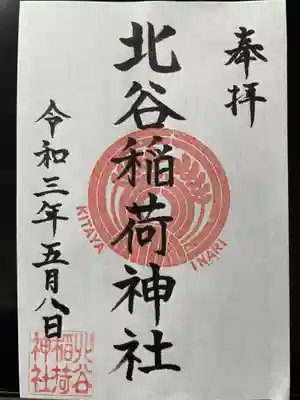 奉拝
北谷稲荷神社
KITAYA INARI
令和三年五月八日
北谷
稲荷
神社